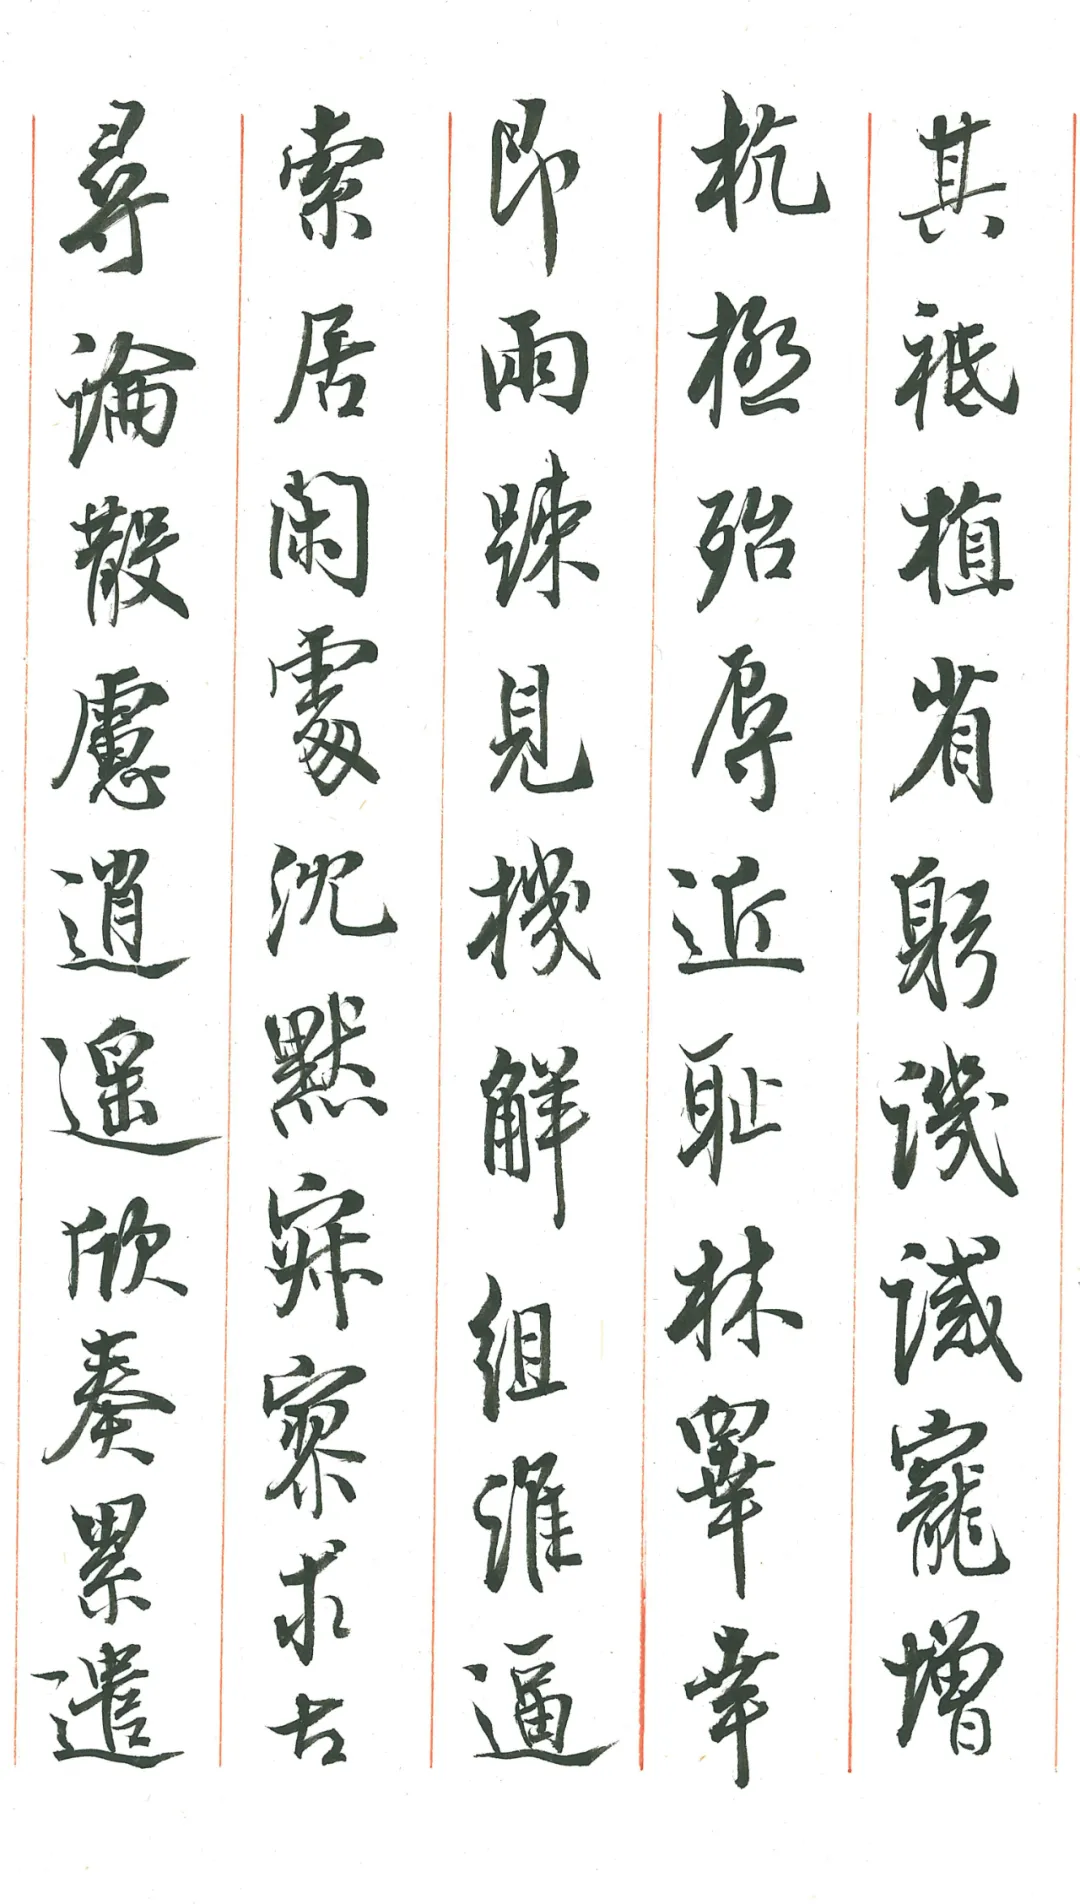 其祗植省躬譏誡寵增
抗極殆辱近恥林皋幸
即兩疎見機解組誰逼
索居閑處沈默寂寥求古
尋論散慮逍遙欣奏累遣